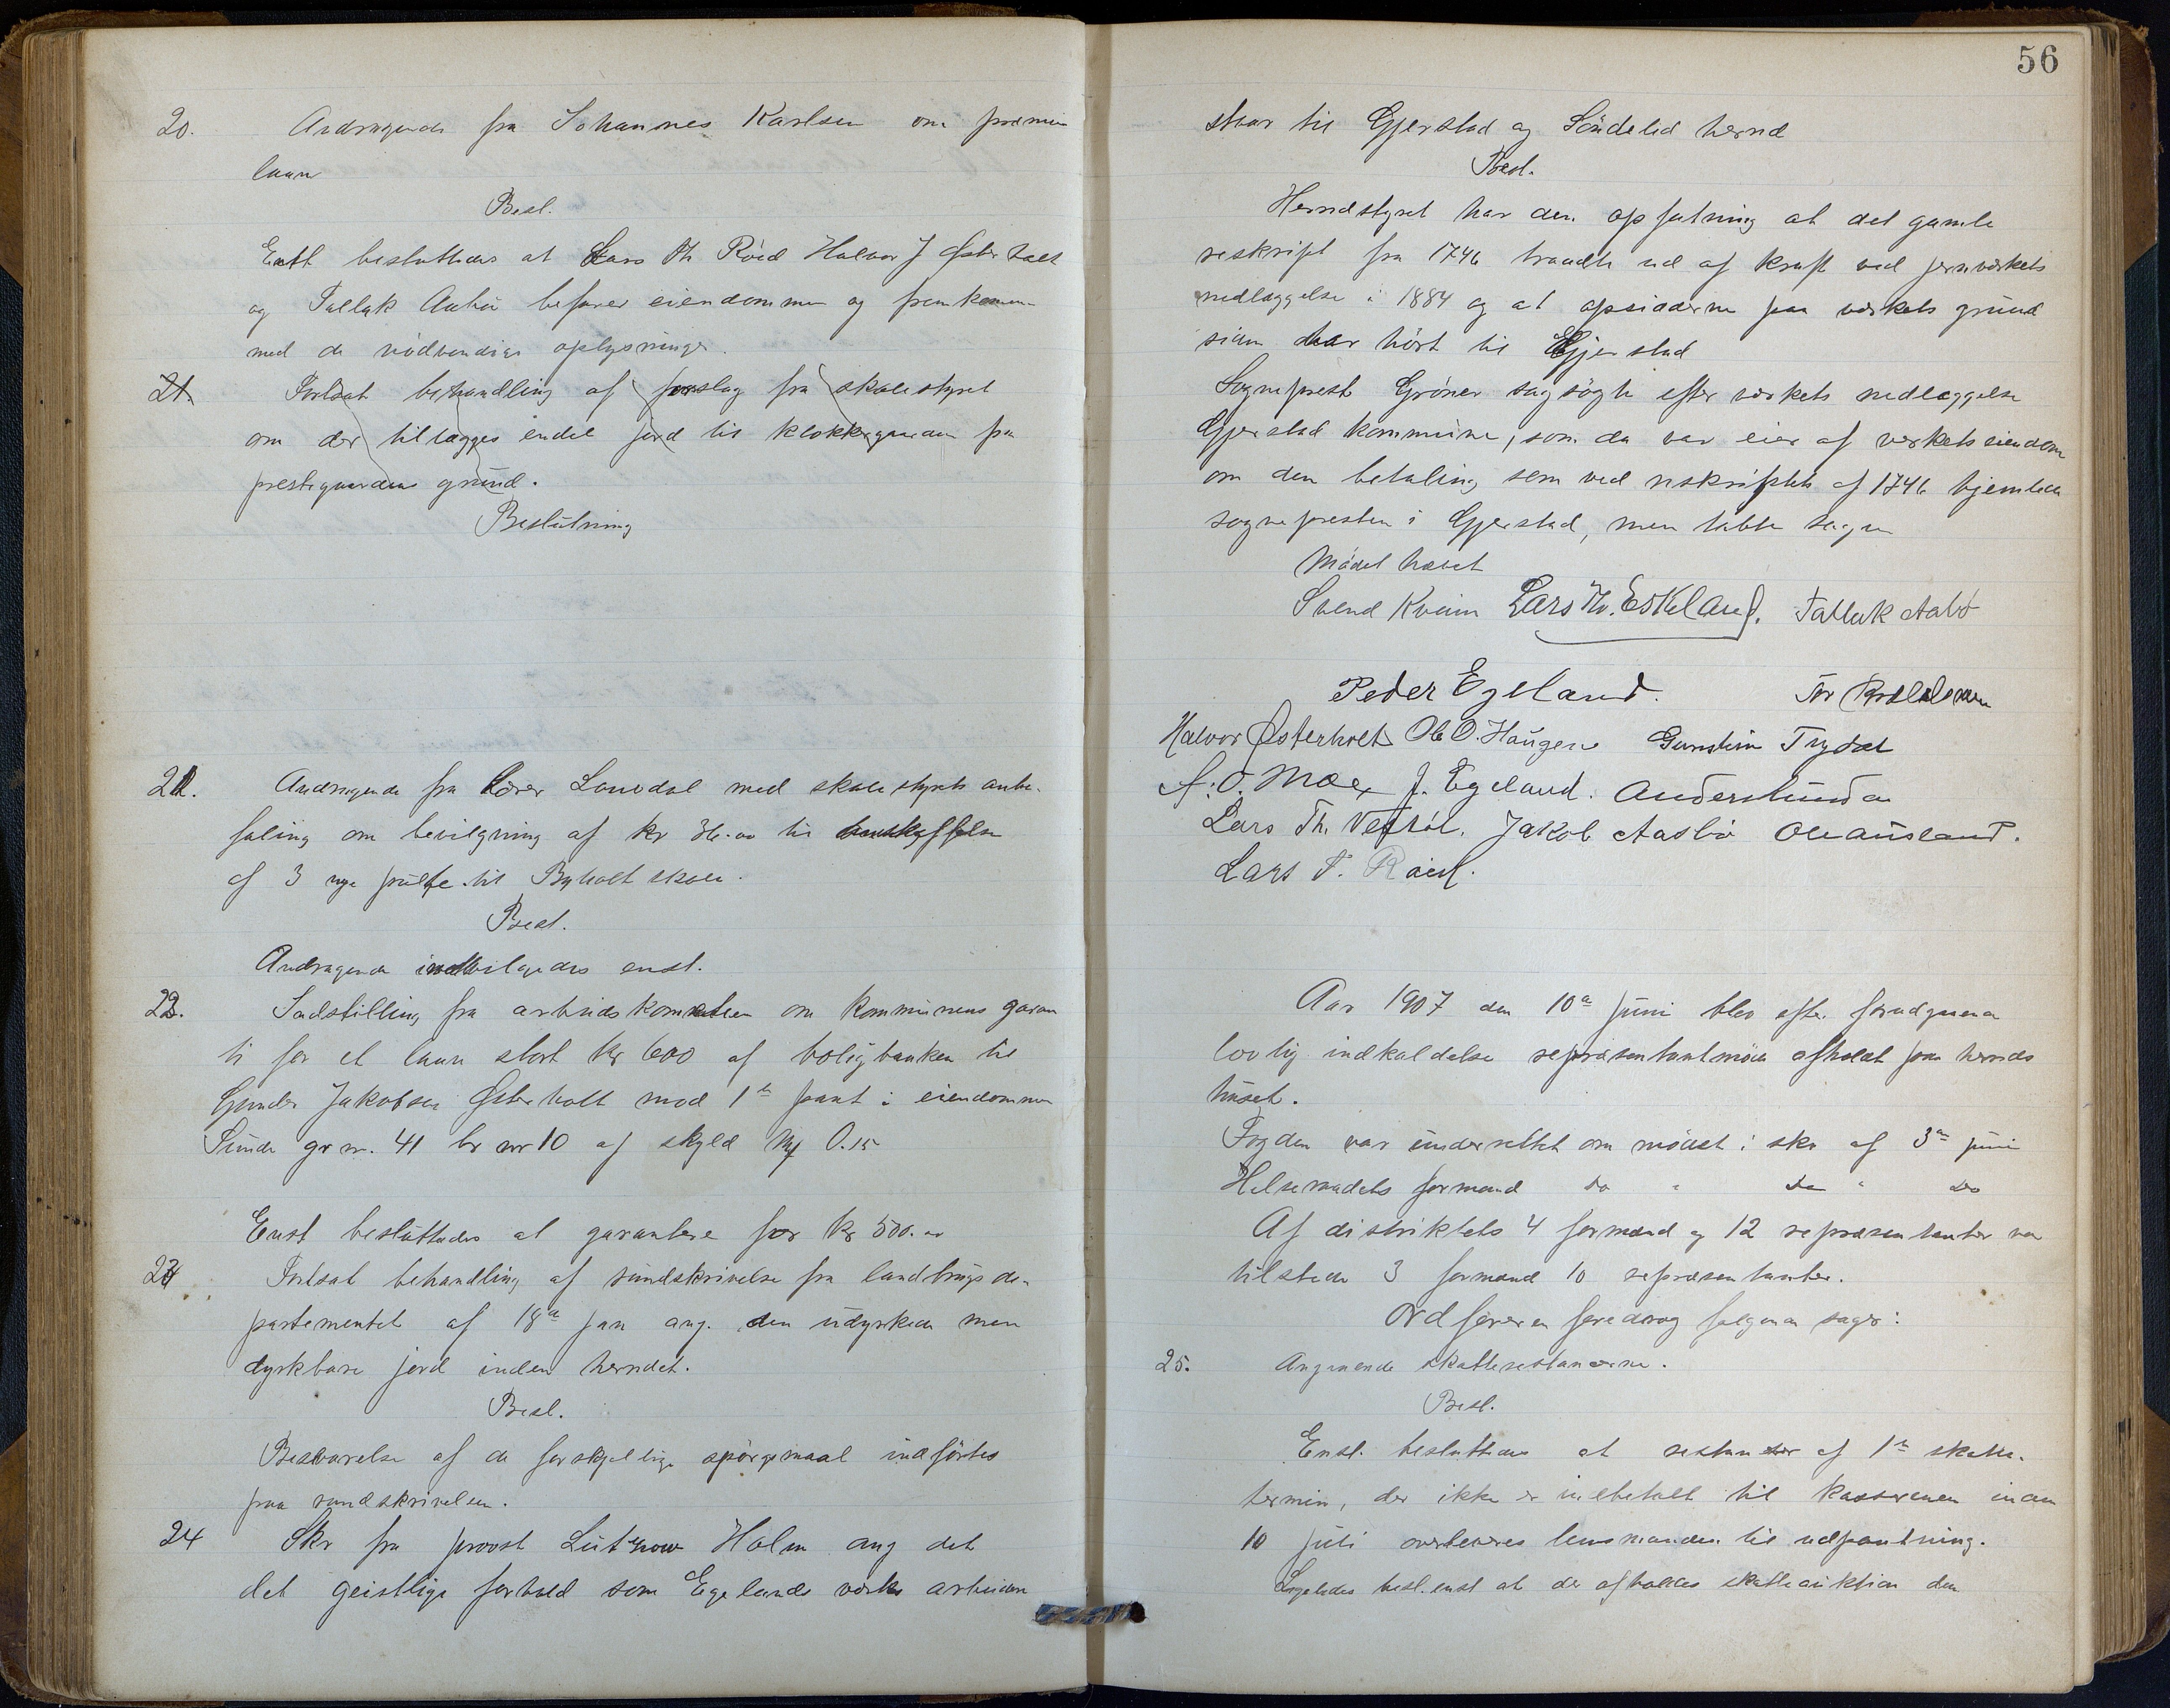 20. Andragende fra Johannes Karlsen om præmie
laan
Besl.
Enst besluttedes at Lars Th Röed Halvor J Østerholt
og Tallak Aabø befarer eiendommen og fremkommer
med de nödvendige oplysninger.
21. Fortsat behandling af forslag fra skolestyret
om der tillægges endel jord til klokkergaarden fra
prestegaardens grund.
Beslutning
21. Andragende fra Lærer Lonedal med skolestyrets anbe-
faling om bevilgning af kr 36.00 til anskaffelse
af 3 nye pulte til Byholt skole.
Besl.
Andragende indvilgedes enst.
22. Indstilling fra arbeidskomiteen om kommunens garan
ti for et laan stort kr 600 af boligbanken til
Gunder Jakobsen Østerholt mod 1ste pant i eiendommen
Sunde gr nr. 41 br nr 10 af skyld Mk 0.15
Enst besluttedes at garantere for kr 500.00
23 Fortsat behandling af rundskrivelse fra landbrugsde-
partementet af 18de jan ang. den udyrkede men
dyrkbare jord inden herredet.
Besl.
Besvarelse af de forskjellige spörgsmaal indförtes
paa rundskrivelsen.
24 Skr fra provst Lützow Holm ang det
det geistlige forhold som Egelands værks arbeidere
56
staar til Gjerstad og Söndeled herred
Besl.
Herredstyret har den opfatning at det gamle
reskript fra 1746 traadte ud af kraft ved jernværkets
nedlæggelse i 1884 og at opsidderne paa værkets grund
siden har hört til Gjerstad
Sogneprest Gröner sagsögte efter værkets nedlæggelse
Gjerstad kommune, som da var eier af verkets eiendom
om den betaling som ved reskriptet af 1746 hjemlede
sognepresten i Gjerstad, men tabte sagen
Mödet hævet
Svend Kveim Lars Th. Eskeland. Tallak Aabø
Peder Egeland. Tor
Halvor Østerholt Ole O. Haugene Gunstein Trydal
A. O. Moe J. Egeland. Anders Lunden
Lars Th. Vestöl. Jakob Aasbö Ole Ausland.
Lars T. Röed.
Aar 1907 den 10de juni blev efter forudgaaende
lovlig indkaldelse repræsentantmöde afholdt paa herreds
huset.
Fogden var underrettet om mödet i skr af 3de juni
Helseraadets formand do " do " do
Af distriktets 4 formænd og 12 repræsentanter var
tilstede 3 formænd 10 repræsentanter.
Ordföreren foredrog fölgende sager:
25. Angaaende skatterestancerne.
Besl.
Enst. besluttedes at restancer af 1ste skatte-
termin, der ikke er indbetalt til kassereren inden
10 juli overleveres lensmanden til udpantning.
Ligeledes besl. enst at der afholdes skatteauktion den